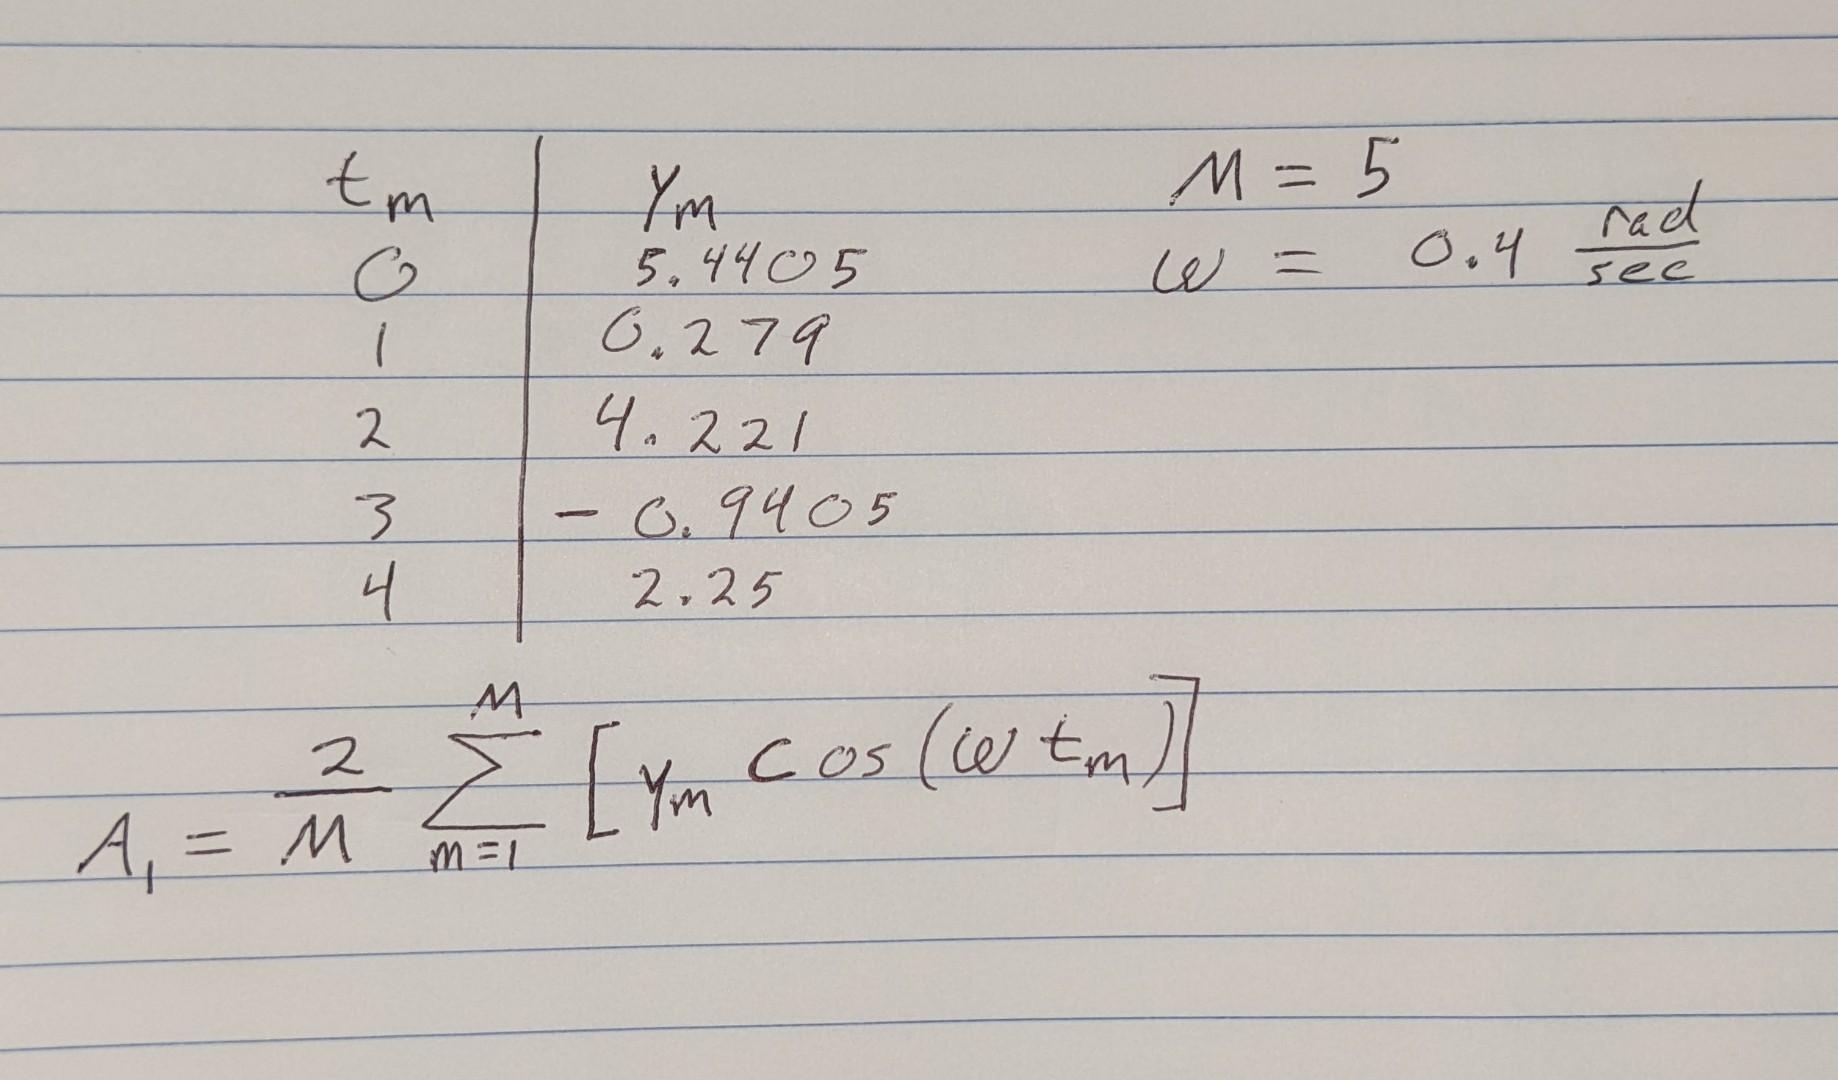 t_m | y_m M = 5
0 | 5.4405 ω = 0.4 rad/sec
1 | 0.279
2 | 4.221
3 | - 0.9405
4 | 2.25
A_1 = 2/M ∑_{m=1}^{M} [y_m cos(ω t_m)]